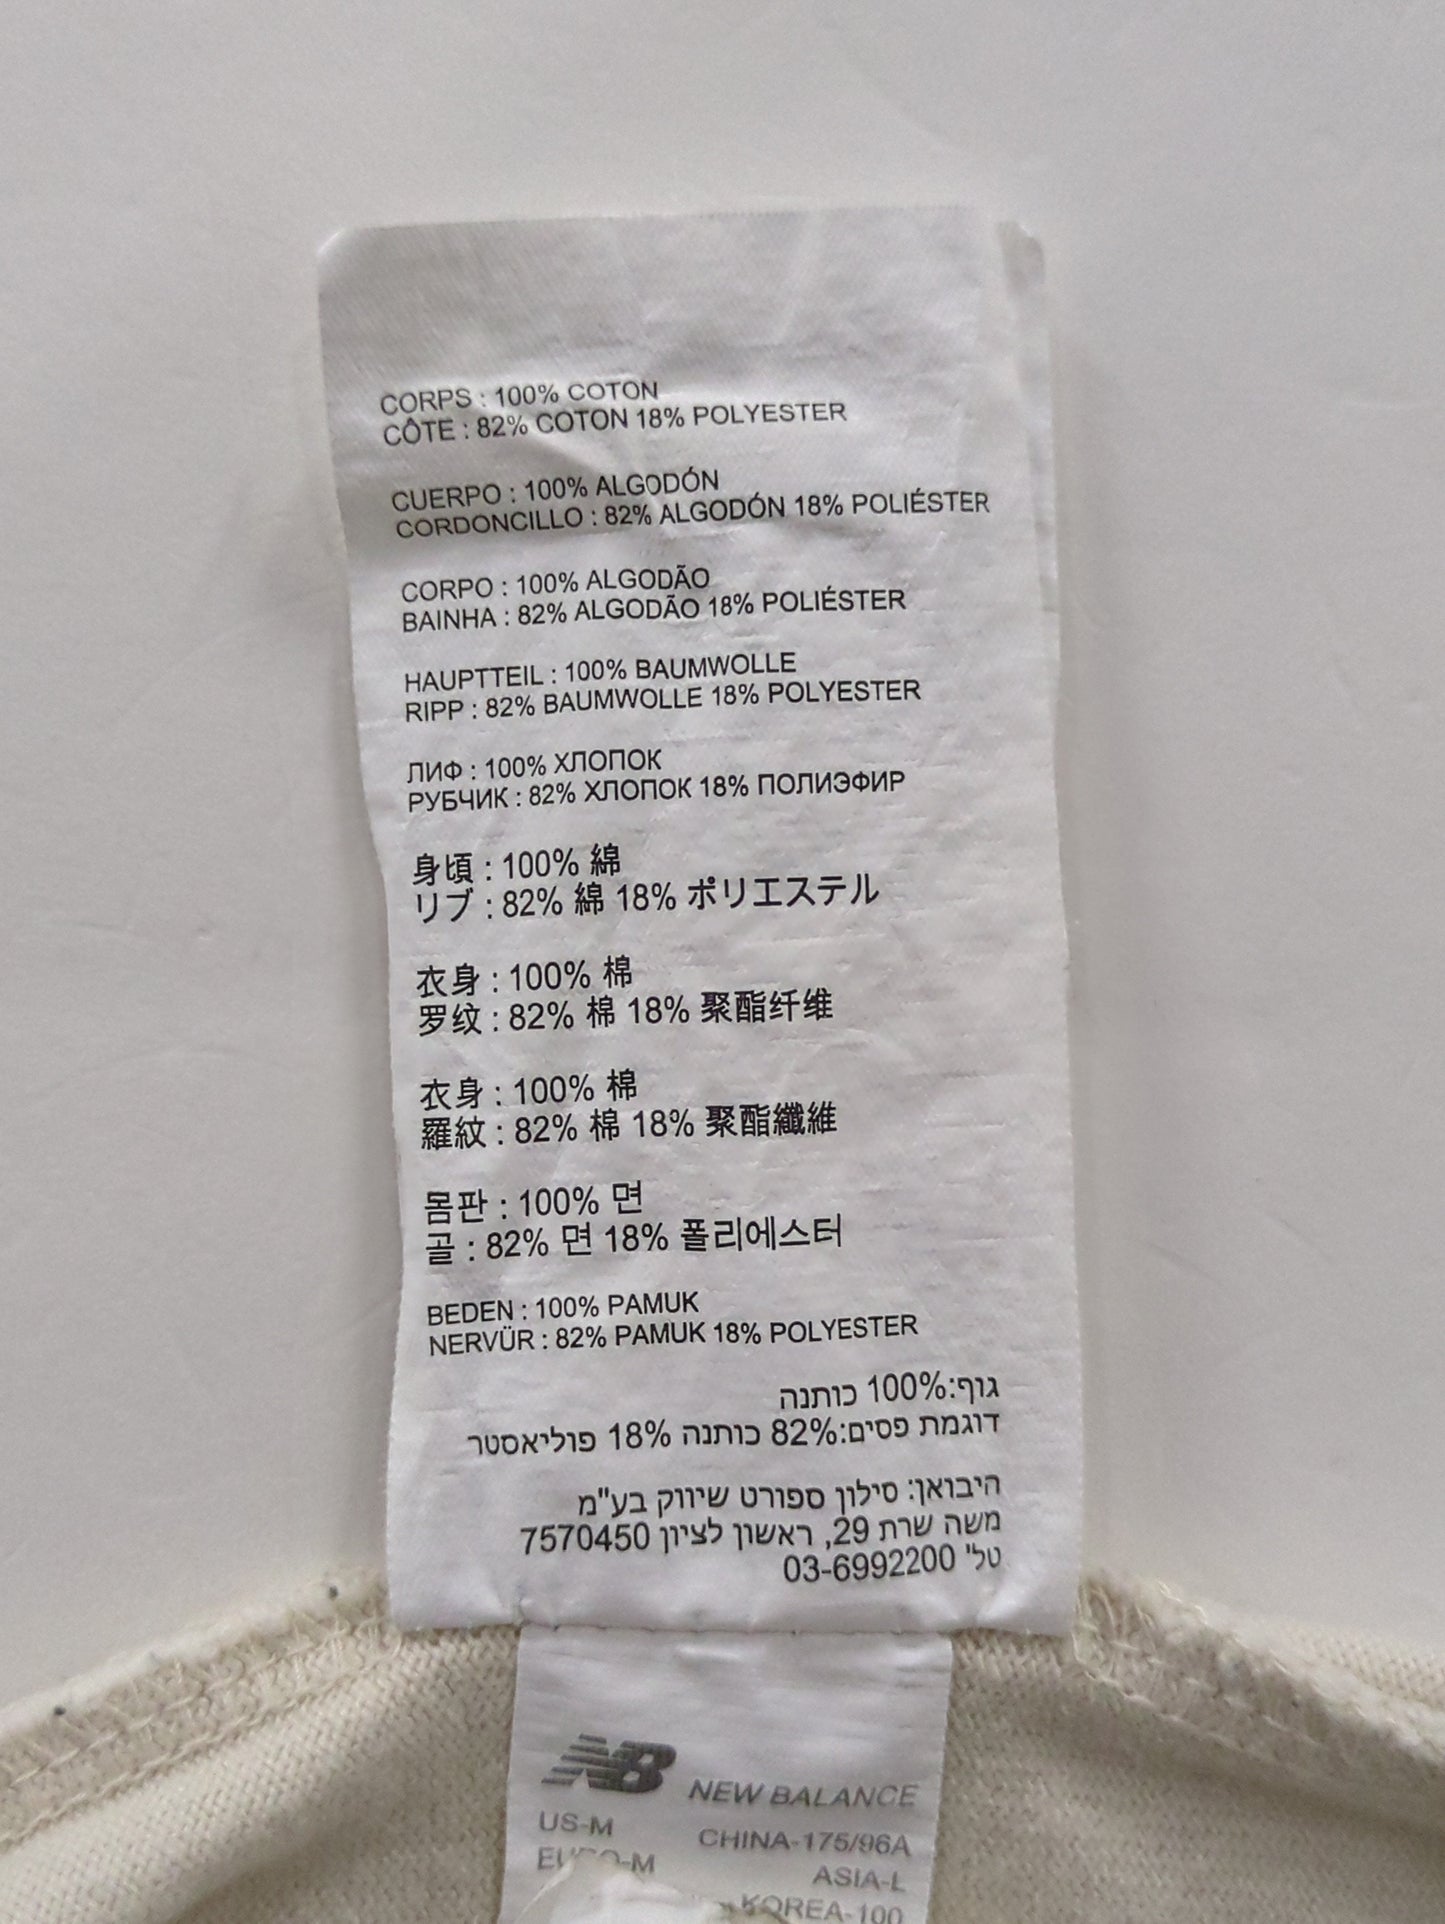 CORPS : 100% COTON
CÔTE : 82% COTON 18% POLYESTER
CUERPO : 100% ALGODÓN
CORDONCILLO : 82% ALGODÓN 18% POLIÉSTER
CORPO : 100% ALGODÃO
BAINHA : 82% ALGODÃO 18% POLIÉSTER
HAUPTTEIL : 100% BAUMWOLLE
RIPP : 82% BAUMWOLLE 18% POLYESTER
ЛИФ : 100% ХЛОПОК
РУБЧИК : 82% ХЛОПОК 18% ПОЛИЭФИР
身頃 : 100% 綿
リブ : 82% 綿 18% ポリエステル
衣身 : 100% 棉
罗纹 : 82% 棉 18% 聚酯纤维
衣身 : 100% 棉
羅紋 : 82% 棉 18% 聚酯纖維
몸판 : 100% 면
골 : 82% 면 18% 폴리에스터
BEDEN : 100% PAMUK
NERVÜR : 82% PAMUK 18% POLYESTER
גוף:100% כותנה
דוגמת פסים:82% כותנה 18% פוליאסטר
היבואן: סילון ספורט שיווק בע"מ
משה שרת 29, ראשון לציון 7570450
טל' 03-6992200
NB NEW BALANCE
US-M CHINA-175/96A
EURO-M ASIA-L
KOREA-100